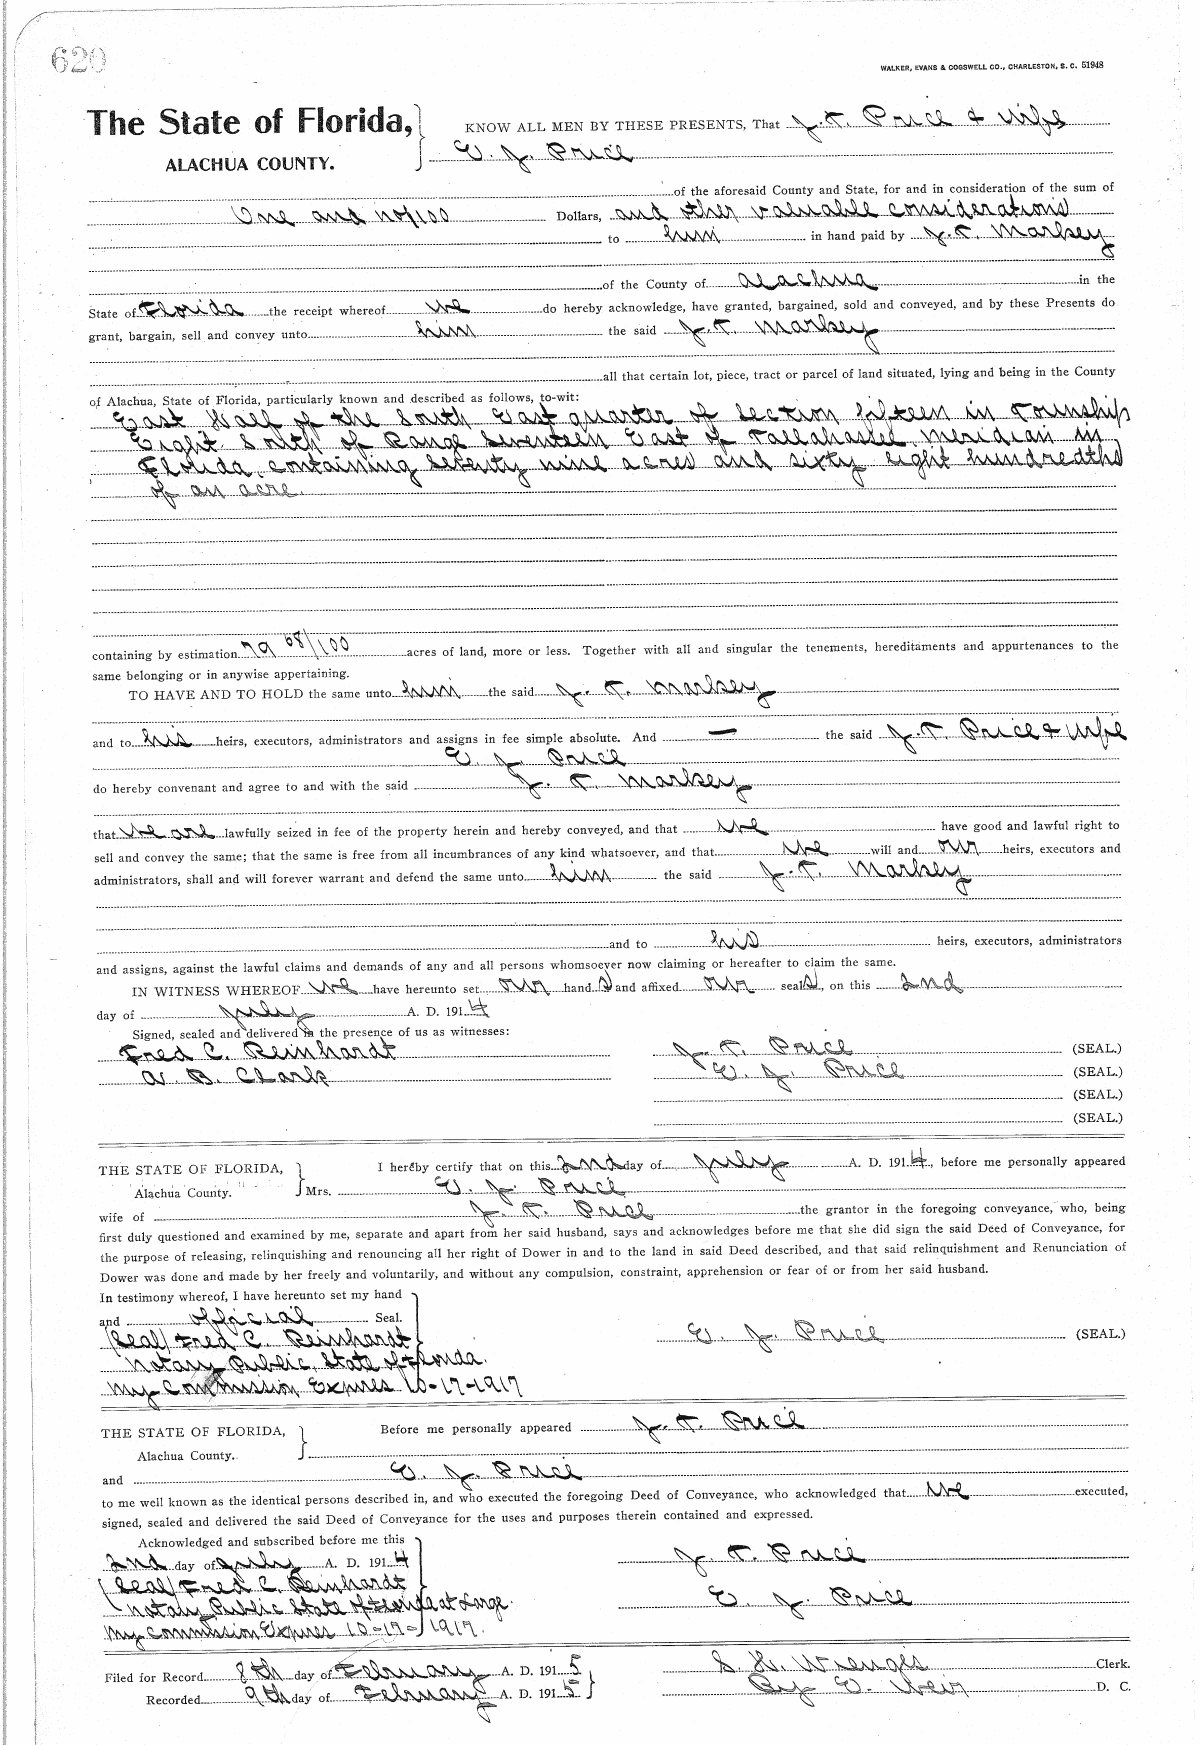 620
WALKER, EVANS & COGSWELL CO., CHARLESTON, S. C. 51948
The State of Florida, KNOW ALL MEN BY THESE PRESENTS, That J. T. Price & Wife
ALACHUA COUNTY. E. J. Price
of the aforesaid County and State, for and in consideration of the sum of
One and no/100 Dollars, and other valuable considerations
to him in hand paid by J. T. Markey
of the County of Alachua in the
State of Florida the receipt whereof we do hereby acknowledge, have granted, bargained, sold and conveyed, and by these Presents do
grant, bargain, sell and convey unto him the said J. T. Markey
all that certain lot, piece, tract or parcel of land situated, lying and being in the County
of Alachua, State of Florida, particularly known and described as follows, to-wit:
East Half of the South East quarter of Section fifteen in Township
Eight South of Range Seventeen East of Tallahassee meridian in
Florida, containing seventy nine acres and sixty eight hundredths
of an acre.
containing by estimation 79 68/100 acres of land, more or less. Together with all and singular the tenements, hereditaments and appurtenances to the
same belonging or in anywise appertaining.
TO HAVE AND TO HOLD the same unto him the said J. T. Markey
and to his heirs, executors, administrators and assigns in fee simple absolute. And — the said J. T. Price & Wife
E. J. Price
do hereby convenant and agree to and with the said J. T. Markey
that we are lawfully seized in fee of the property herein and hereby conveyed, and that we have good and lawful right to
sell and convey the same; that the same is free from all incumbrances of any kind whatsoever, and that we will and our heirs, executors and
administrators, shall and will forever warrant and defend the same unto him the said J. T. Markey
and to his heirs, executors, administrators
and assigns, against the lawful claims and demands of any and all persons whomsoever now claiming or hereafter to claim the same.
IN WITNESS WHEREOF we have hereunto set our hand s and affixed our seals, on this 2nd
day of July A. D. 1914
Signed, sealed and delivered in the presence of us as witnesses:
Fred C. Reinhardt J. T. Price (SEAL.)
A. B. Clark E. J. Price (SEAL.)
(SEAL.)
(SEAL.)
THE STATE OF FLORIDA, I hereby certify that on this 2nd day of July A. D. 1914, before me personally appeared
Alachua County. Mrs. E. J. Price
wife of J. T. Price the grantor in the foregoing conveyance, who, being
first duly questioned and examined by me, separate and apart from her said husband, says and acknowledges before me that she did sign the said Deed of Conveyance, for
the purpose of releasing, relinquishing and renouncing all her right of Dower in and to the land in said Deed described, and that said relinquishment and Renunciation of
Dower was done and made by her freely and voluntarily, and without any compulsion, constraint, apprehension or fear of or from her said husband.
In testimony whereof, I have hereunto set my hand
and official Seal.
(Seal) Fred C. Reinhardt E. J. Price (SEAL.)
Notary Public, State of Florida.
My Commission Expires 10-17-1917
THE STATE OF FLORIDA, Before me personally appeared J. T. Price
Alachua County.
and E. J. Price
to me well known as the identical persons described in, and who executed the foregoing Deed of Conveyance, who acknowledged that we executed,
signed, sealed and delivered the said Deed of Conveyance for the uses and purposes therein contained and expressed.
Acknowledged and subscribed before me this
2nd day of July A. D. 1914 J. T. Price
(Seal) Fred C. Reinhardt
Notary Public State of Florida at Large. E. J. Price
My Commission Expires 10-17-1917.
Filed for Record 8th day of February A. D. 1915 S. H. Wienges Clerk.
Recorded 9th day of February A. D. 1915 By E. Weir D. C.